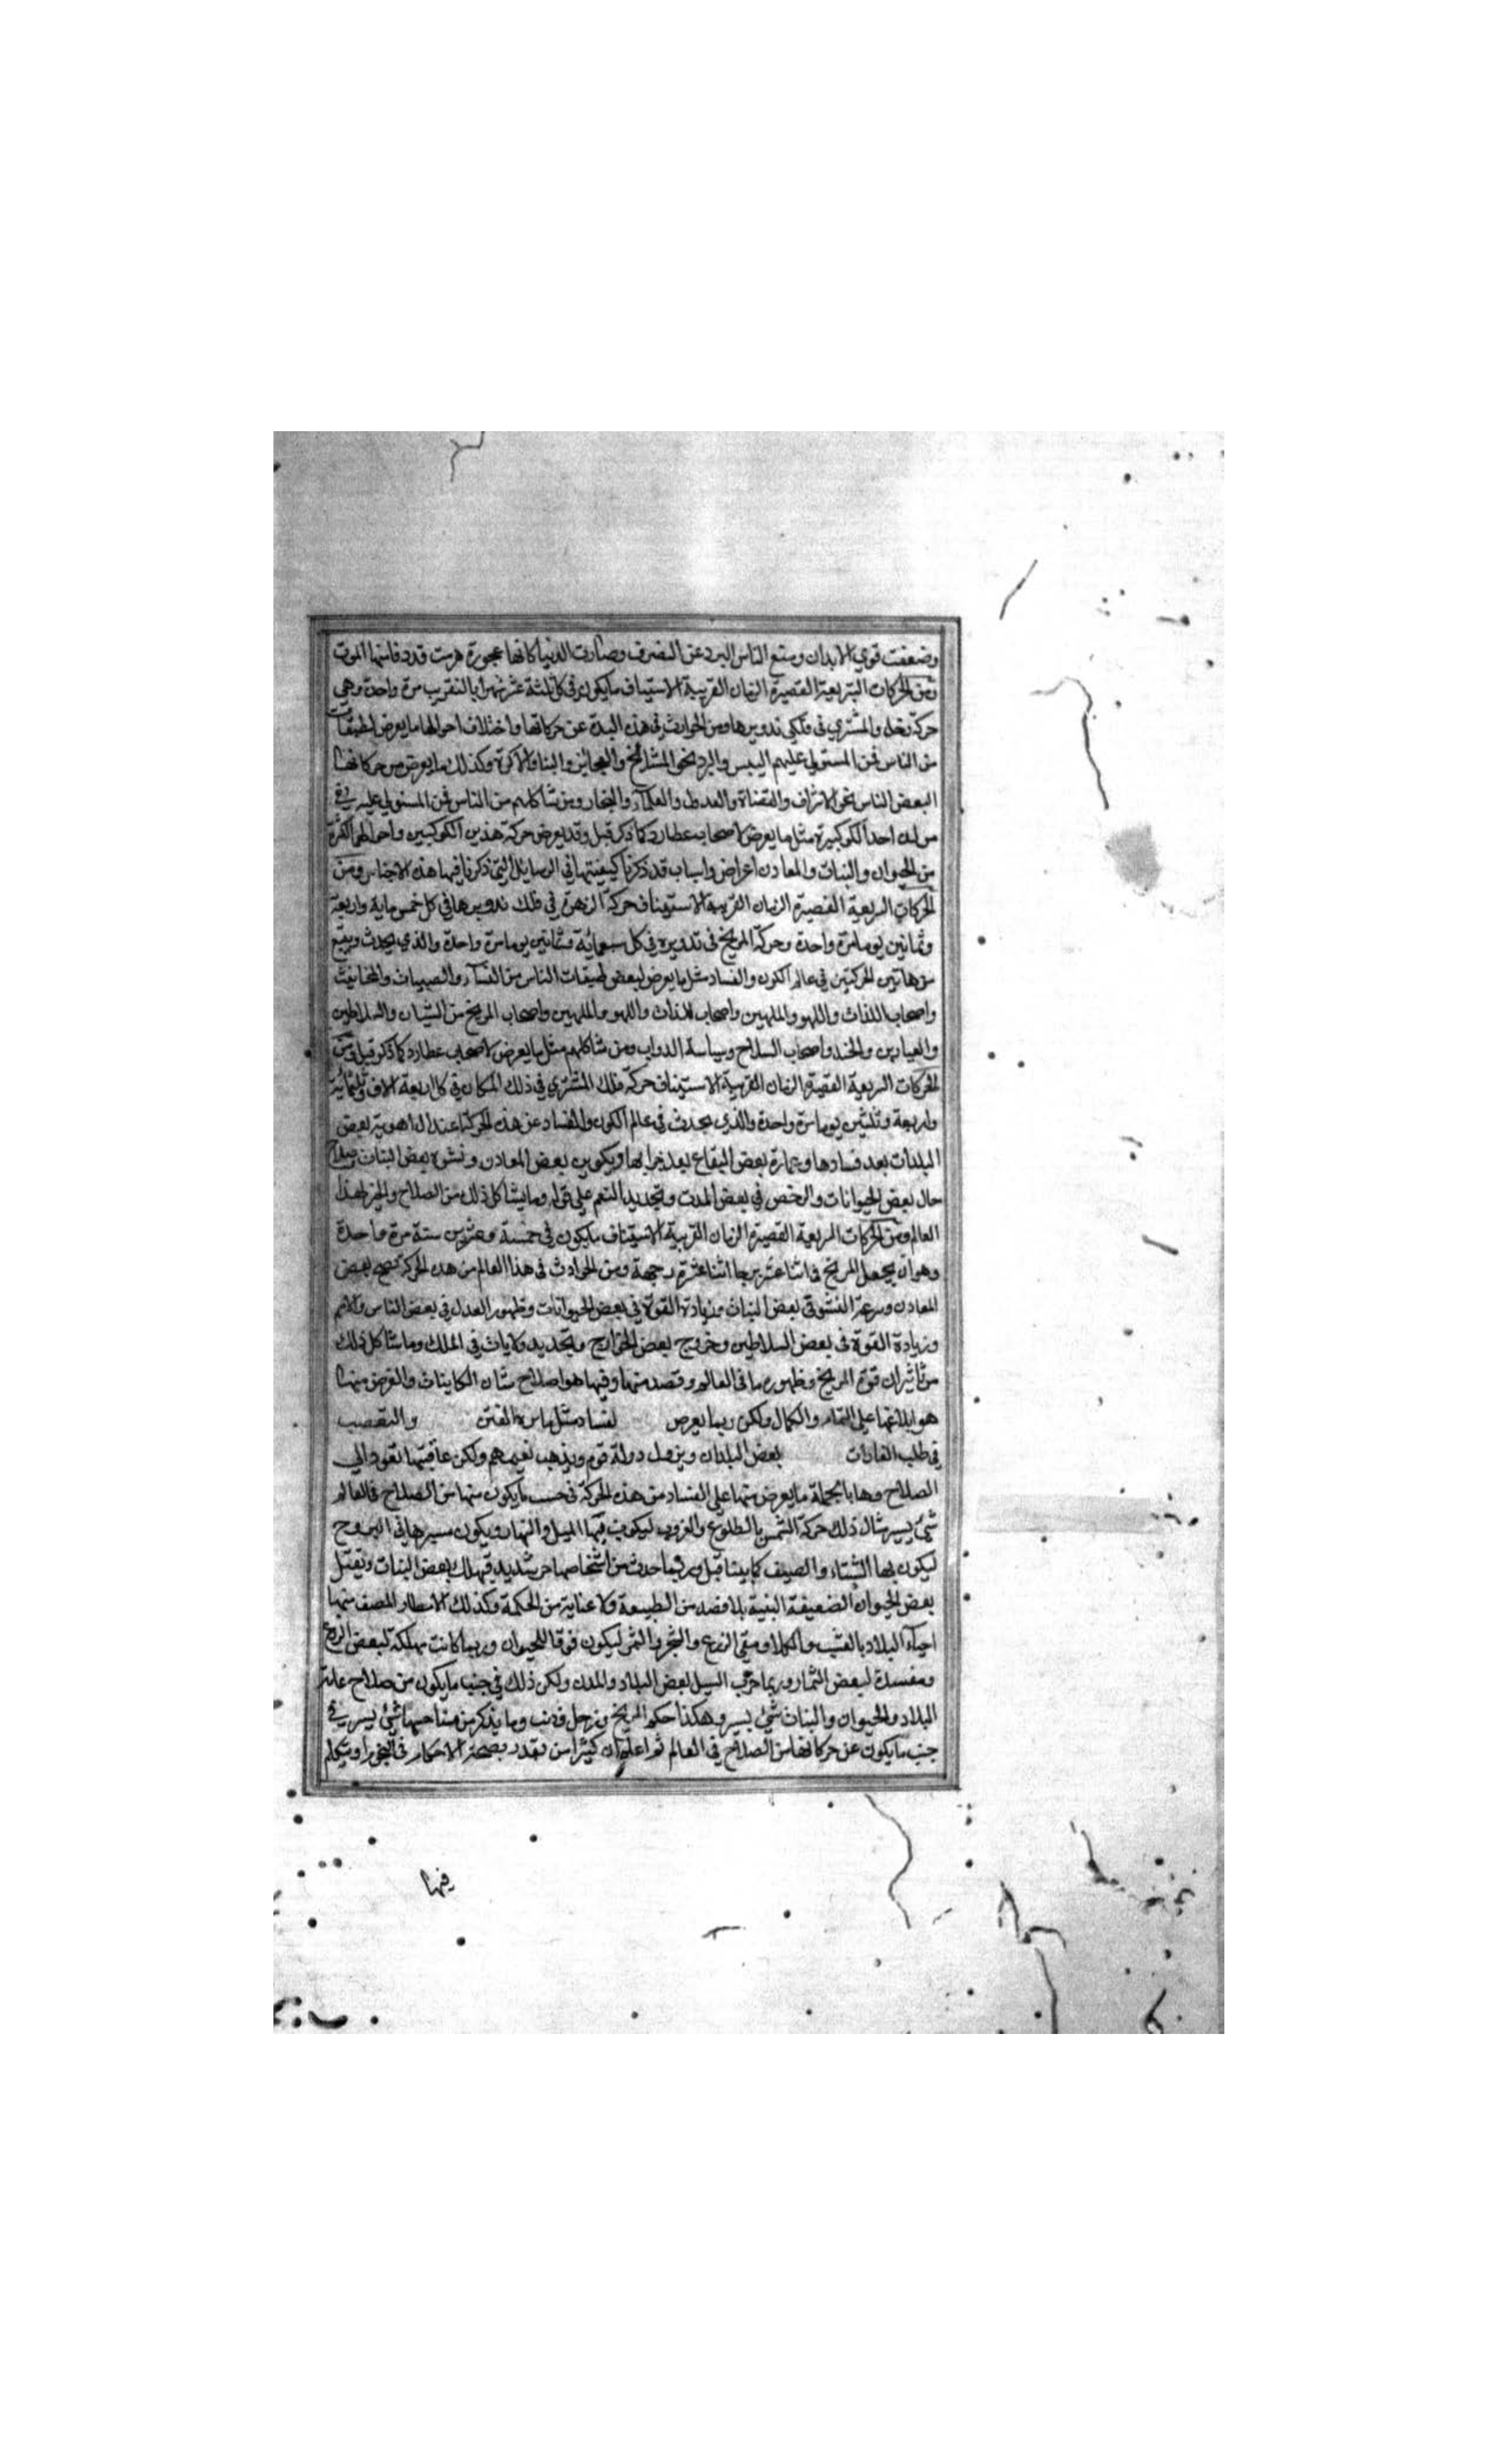 وضعفت قوي الابدان ومنع الناس البرد عن التصرف وصارت الدنيا كانها عجوزة هرمت قد دفا منها الموت
ومن الحركات السريعة القصيرة الزمان القريبة الاستيناف ما يكون في كل ثلثة عشر شهرا بالتقريب مرة واحدة وهي
حركة زحل والمشتري في فلكي تدويرها ومن الحوادث في هذه المدة عن حركاتها واختلاف احوالها ما يعرض لطبقات
من الناس فمن المستولي عليهم اليبس والبرد نحو المشائخ والعجائز والبناو الاكرة وكذلك ما يعرض من حركاتها
لبعض الناس نحو الاشراف والقضاة والعدول والعلماء والتجار ومن شاكلهم من الناس فمن المستولي عليه في
مولده احد الكوكبين مثل ما يعرض لاصحاب عطارد كما ذكر قبل وقد يعرض حركة هذين الكوكبين واحوالها
من الحيوان والنبات والمعادن اعراض واسباب قد ذكرنا كيفيتها في الرسايل التي ذكرنا فيها هذه الاجناس ومن
الحركات السريعة القصيرة الزمان القريبة الاستيناف حركة الزهرة في فلك تدويرها في كل خمس ماية واربعة
وثمانين يوما مرة واحدة وحركة المريخ في تدويره في كل سبعمائة وثمانين يوما مرة واحدة والذي يحدث ويتبع
من هاتين الحركتين في عالم الكون والفساد مثل ما يعرض لبعض طبقات الناس من النساء والصبيان والمخانيث
واصحاب اللذات واللهو والملهين واصحاب اللذات واللهو والملهين واصحاب المريخ من الشبان والسلاطين
والعيارين والجند واصحاب السلاح وسياسة الدواب ومن شاكلهم مثل ما يعرض لاصحاب عطارد كما ذكر قبل ومن
الحركات السريعة القصيرة الزمان القريبة الاستيناف حركة فلك المشتري في ذلك المكان في كل اربعة الاف وثلثمائة
واربعة وثلثين يوما مرة واحدة والذي يحدث في عالم الكون والفساد عن هذه الحركة اعتدال اهوية بعض
البلدات بعد فسادها وعمارة بعض البقاع بعد خرابها وتكوين بعض المعادن ونشوء بعض النبات وصلاح
حال بعض الحيوانات والرخص في بعض المدن وتجديد النعم على قوم وما يشاكل ذلك من الصلاح والخير لهذا
العالم ومن الحركات السريعة القصيرة الزمان القريبة الاستيناف ما يكون في خمسة وعشرين سنة مرة واحدة
وهو ان يحصل المريخ في اثنا عشر برجا اثنا عشرة رجعة ومن الحوادث في هذا العالم من هذه الحركة نضج بعض
المعادن وسرعة النشو في بعض النبات وزيادة القوة في بعض الحيوانات وظهور العدل في بعض الناس والامم
وزيادة القوة في بعض السلاطين وخروج بعض الخوارج وتجديد ولايات في الملك وما شاكل ذلك
من تاثيرات قوة المريخ وظهور ما في العالم وقصد منها وفيها هو اصلاح شان الكاينات والغرض منها
هو ابلاغها على التمام والكمال ولكن ربما يعرض لفساد مثل الفتن والتعصب
في طلب الغارات بعض البلدان ويزول دولة قوم ويذهب نعيمهم ولكن عاقبتها تعود الي
الصلاح وها بالجملة ما يعرض منها على الفساد من هذه الحركة في حسب ما يكون منها من الصلاح في العالم
شيء يسير مثال ذلك حركة الشمس بالطلوع والغروب ليكون بها الليل والنهار ويكون مسيرها في البروج
ليكون بها الشتاء والصيف كما بينا قبل وربما حدث من اشخاصها حر شديد فيهلك بعض النبات وتقتل
بعض الحيوان الضعيفة البنية بلا قصد من الطبيعة ولا عناية من الحكمة وكذلك الامطار المصف منها
احياء البلاد بالعشب والكلا وسقي الزرع والشجر والثمر ليكون قوتا للحيوان وربما كانت مهلكة لبعض الزرع
ومفسدة لبعض الثمار وربما خرب السيل بعض البلاد والمدن ولكن ذلك في جنب ما يكون من صلاح عامة
البلاد والحيوان والنبات شيء يسير وهكذا حكم المريخ وزحل وذنب وما يذكر من مناحسها شيء يسير في
جنب ما يكون عن حركاتها من الصلاح في العالم ثم اعلم ان كثيرا من يقدر بصحة الاحكام في النجوم او يتكلم
فيها